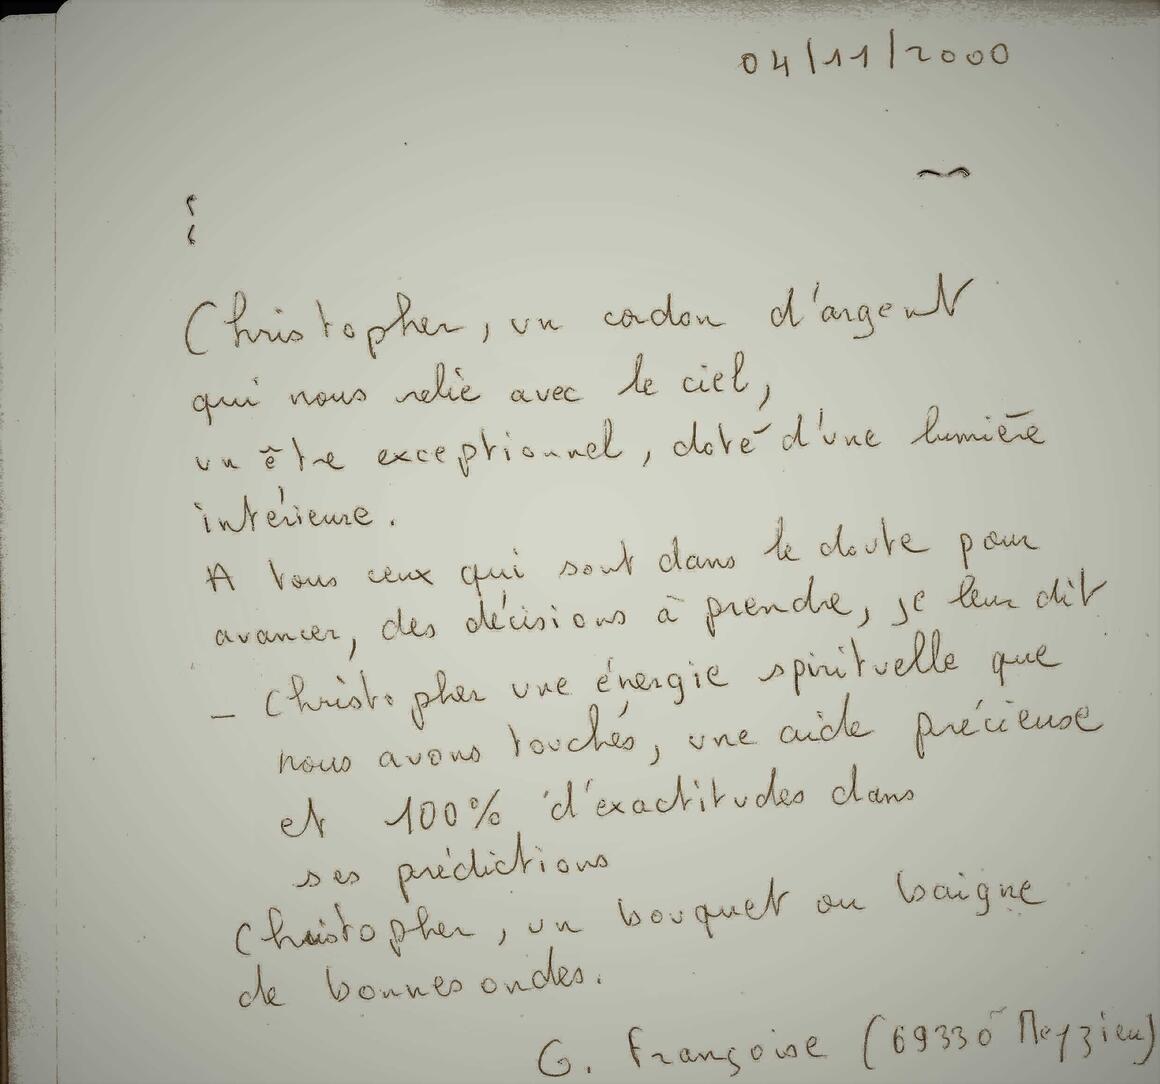 04/11/2000
Christopher, un cordon d'argent
qui nous relie avec le ciel,
un être exceptionnel, doté d'une lumière
intérieure.
A tous ceux qui sont dans le doute pour
avancer, des décisions à prendre, je leur dit
- Christopher une énergie spirituelle que
nous avons touchés, une aide précieuse
et 100% d'exactitudes dans
ses prédictions
Christopher, un bouquet ou baigne
de bonnes ondes.
G. Françoise (69330 Meyzieu)